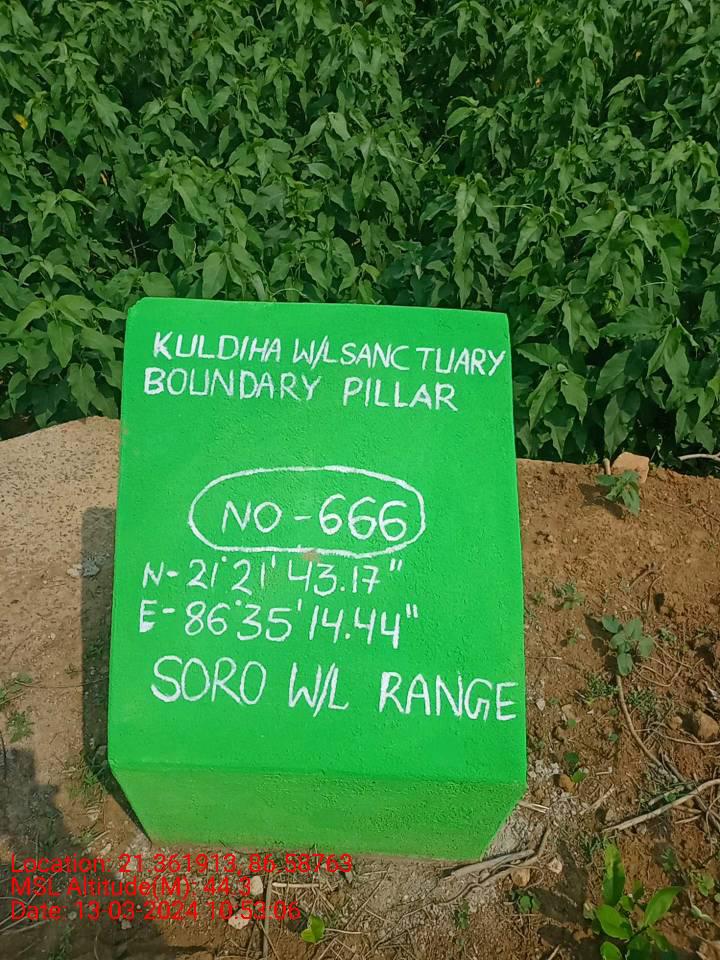 KULDIHA W/L SANCTUARY
BOUNDARY PILLAR
NO-666
N-21°21'43.17"
E-86°35'14.44"
SORO W/L RANGE
Location: 21.361913, 86.58763
MSL Altitude(M): 44.3
Date: 13-03-2024 10:53:06